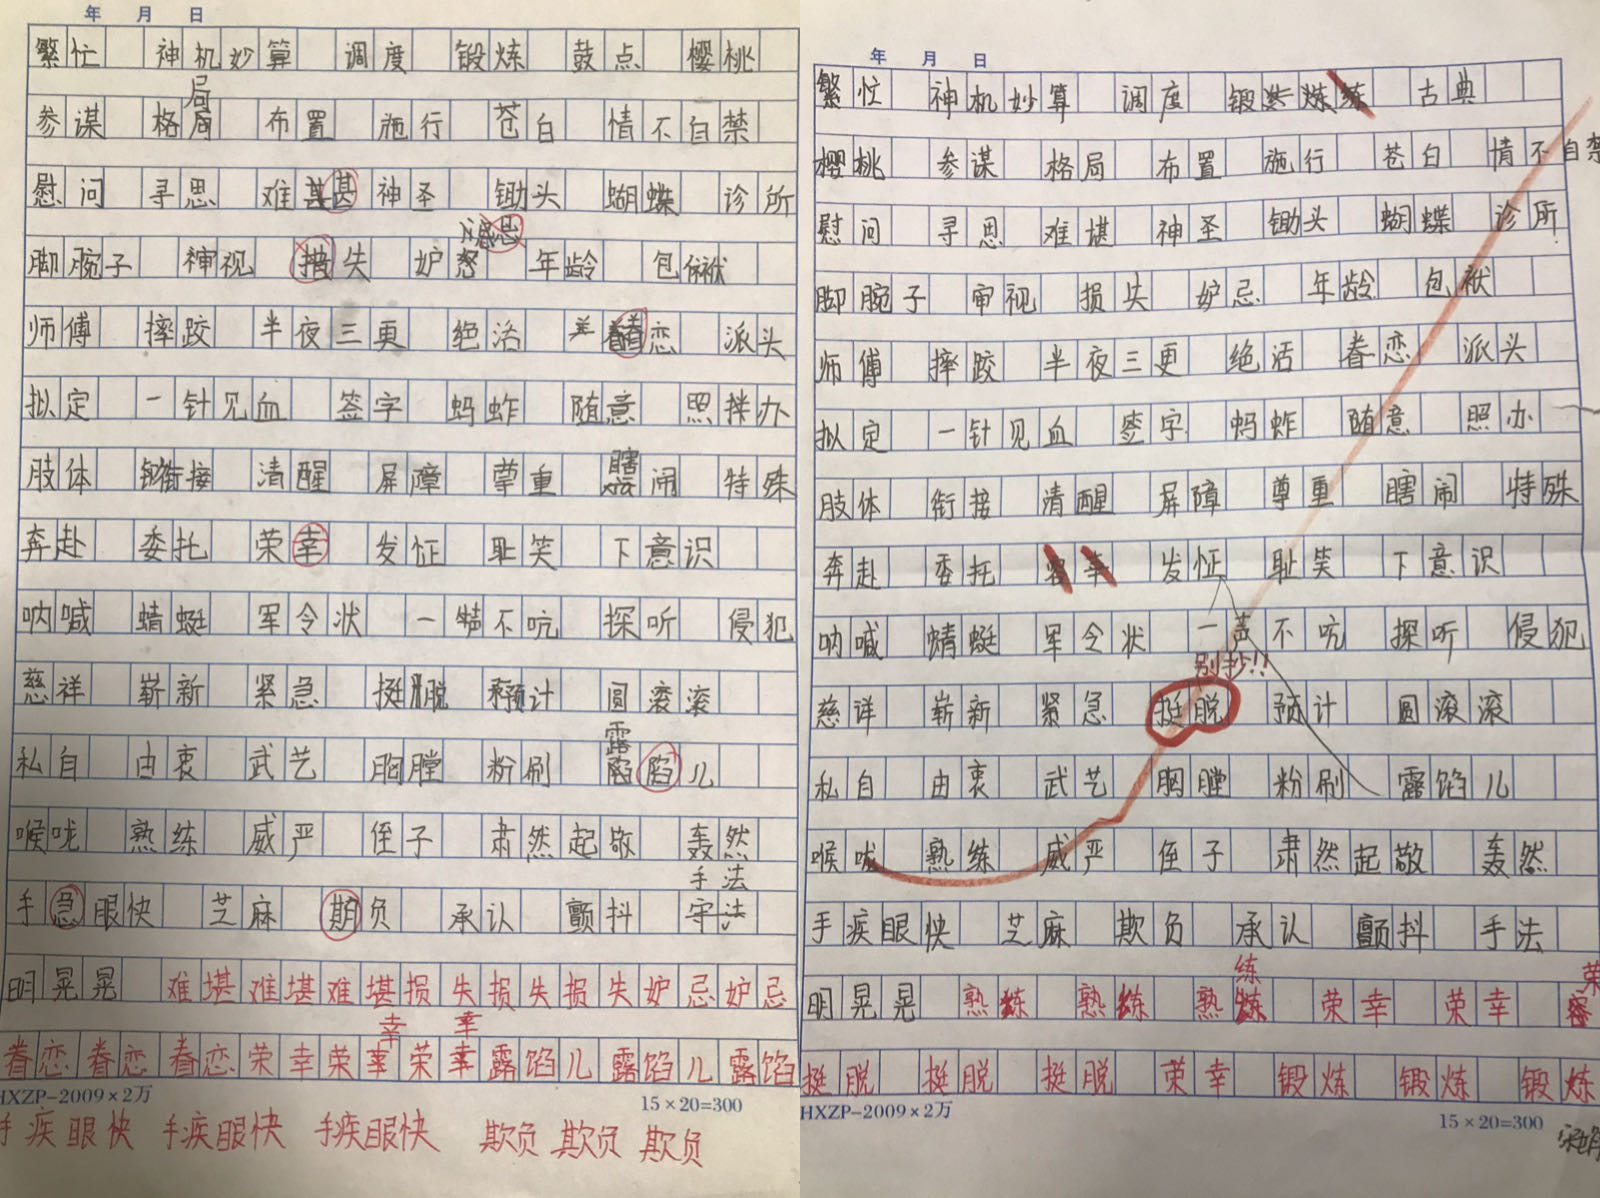 年 月 日
繁忙 神机妙算 调度 锻炼 鼓点 樱桃
局
参谋 格局 布置 施行 苍白 情不自禁
慰问 寻思 难甚 神圣 锄头 蝴蝶 诊所
脚腕子 审视 措失 妒忌 年龄 包袱
师傅 摔跤 半夜三更 绝活 眷恋 派头
拟定 一针见血 签字 蚂蚱 随意 照样办
瞎
肢体 衔接 清醒 屏障 尊重 闹 特殊
奔赴 委托 荣幸 发怔 耻笑 下意识
呐喊 蜻蜓 军令状 一声不吭 探听 侵犯
慈祥 崭新 紧急 挺脱 预计 圆滚滚
露
私自 由衷 武艺 胸膛 粉刷 陷儿
喉咙 熟练 威严 侄子 肃然起敬 轰然
手法
手急眼快 芝麻 期负 承认 颤抖 守法
明晃晃 难堪难堪难堪损失损失损失妒忌妒忌
幸 幸
眷恋眷恋 眷恋荣幸荣幸荣幸露馅儿露馅儿露馅
HXZP-2009×2万 15×20=300
手疾眼快 手疾眼快 手疾眼快 欺负 欺负 欺负
年 月 日
繁忙 神机妙算 调度 锻炼 古典
樱桃 参谋 格局 布置 施行 苍白 情不自禁
慰问 寻思 难堪 神圣 锄头 蝴蝶 诊所
脚腕子 审视 损失 妒忌 年龄 包袱
师傅 摔跤 半夜三更 绝活 眷恋 派头
拟定 一针见血 签字 蚂蚱 随意 照办
肢体 衔接 清醒 屏障 尊重 瞎闹 特殊
奔赴 委托 容幸 发怔 耻笑 下意识
呐喊 蜻蜓 军令状 一声不吭 探听 侵犯
别抄!!
慈详 崭新 紧急 挺脱 预计 圆滚滚
私自 由衷 武艺 胸膛 粉刷 露馅儿
喉咙 熟练 威严 侄子 肃然起敬 轰然
手疾眼快 芝麻 欺负 承认 颤抖 手法
练 荣
明晃晃 熟练 熟练 熟练 荣幸 荣幸
挺脱 挺脱 挺脱 荣幸 锻炼 锻炼 锻炼
HXZP-2009×2万 15×20=300